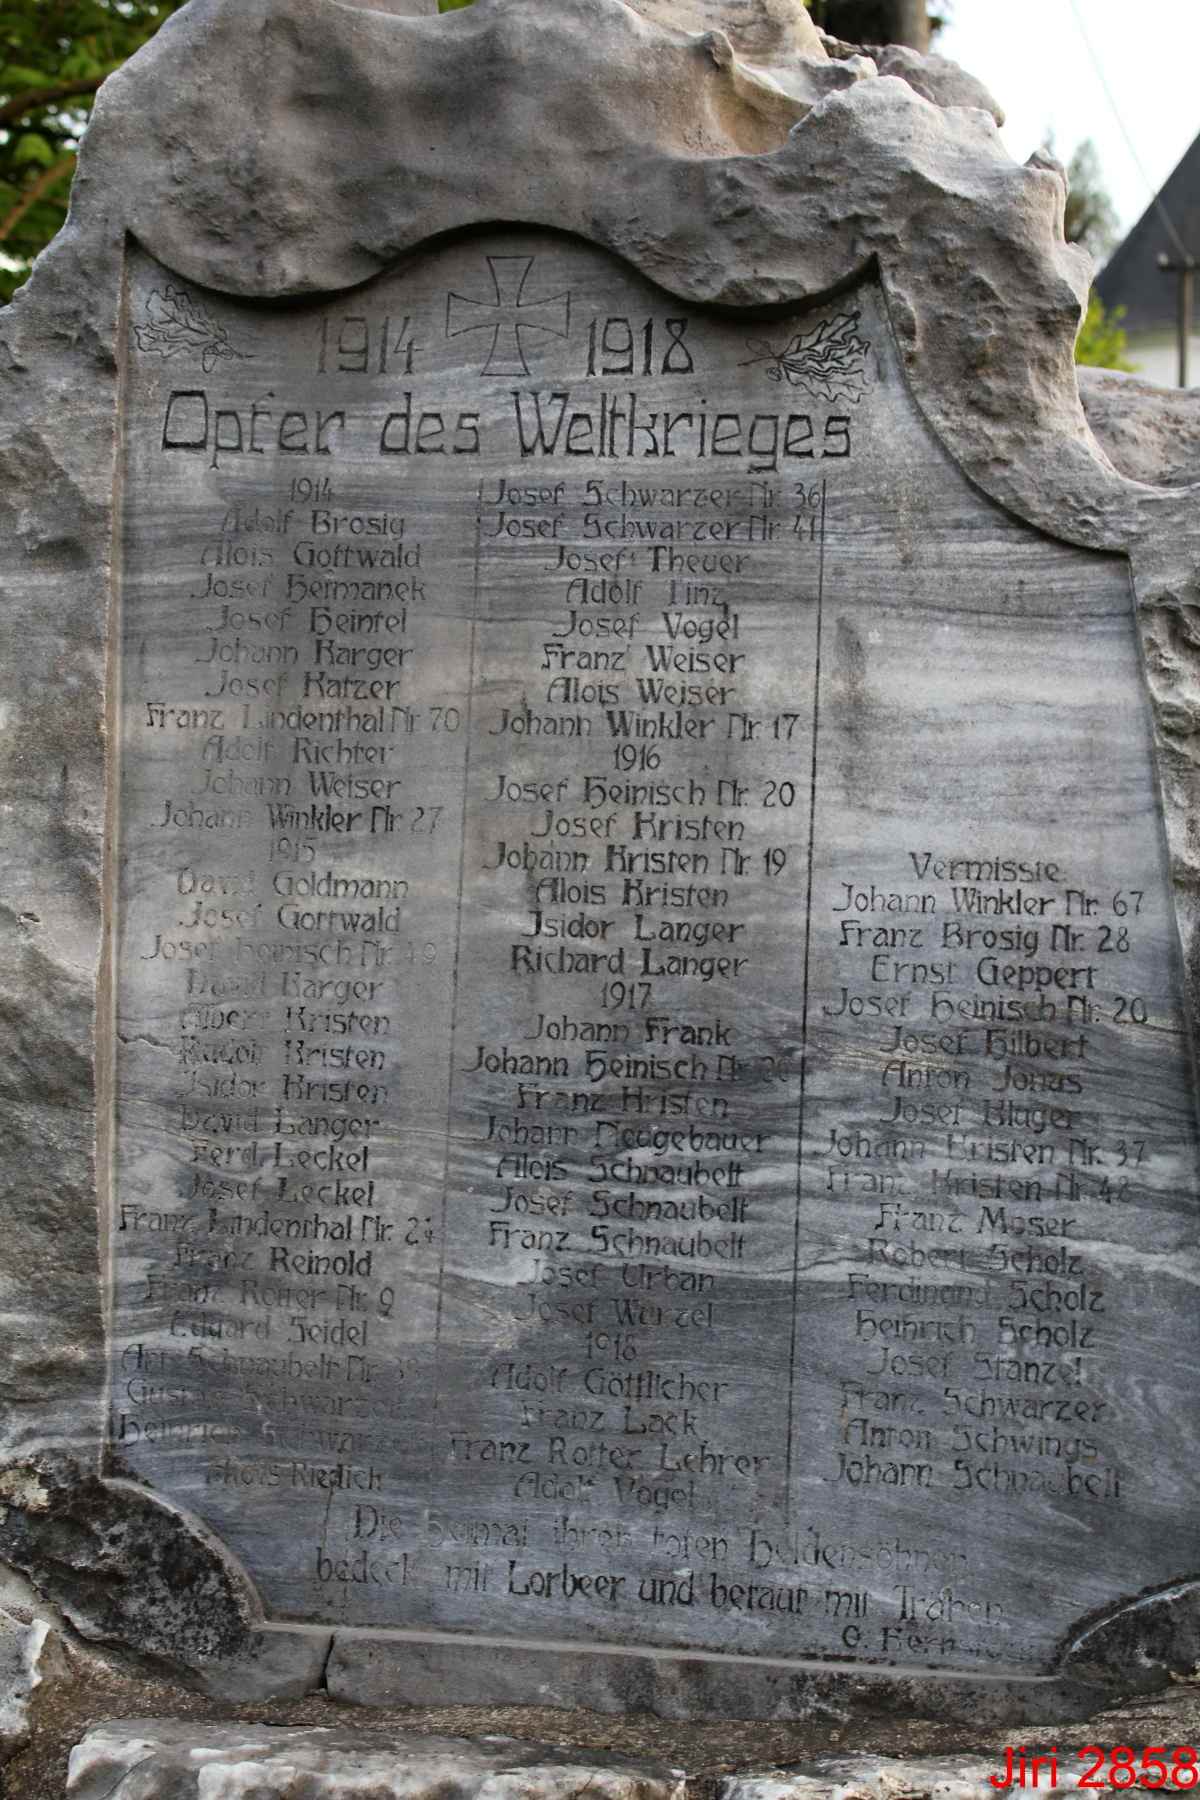 1914 1918
Opfer des Weltkrieges
1914
Adolf Brosig
Alois Gottwald
Josef Hermanek
Josef Heintel
Johann Karger
Josef Katzer
Franz Lindenthal Nr. 70
Adolf Richter
Johann Weiser
Johann Winkler Nr. 27
1915
David Goldmann
Josef Gottwald
Josef Heinisch Nr. 49
David Karger
Albert Kristen
Rudolf Kristen
Isidor Kristen
David Langer
Ferd. Leckel
Josef Leckel
Franz Lindenthal Nr. 24
Franz Reinold
Franz Rotter Nr. 9
Eduard Seidel
Ant. Schnaubelt Nr.
Gustav Schwarzer
Heinrich Schwarzer
Alois Riedich
Josef Schwarzer Nr. 36
Josef Schwarzer Nr. 41
Josef Theuer
Adolf Tinz
Josef Vogel
Franz Weiser
Alois Weiser
Johann Winkler Nr. 17
1916
Josef Heinisch Nr. 20
Josef Kristen
Johann Kristen Nr. 19
Alois Kristen
Isidor Langer
Richard Langer
1917
Johann Frank
Johann Heinisch Nr. 20
Franz Kristen
Johann Neugebauer
Alois Schnaubelt
Josef Schnaubelt
Franz Schnaubelt
Josef Urban
Josef Wurzel
1918
Adolf Göttlicher
Franz Lack
Franz Rotter Lehrer
Adolf Vogel
Vermisste:
Johann Winkler Nr. 67
Franz Brosig Nr. 28
Ernst Geppert
Josef Heinisch Nr. 20
Josef Hilbert
Anton Jonus
Josef Kluger
Johann Kristen Nr. 37
Franz Kristen Nr. 48
Franz Moser
Robert Scholz
Ferdinand Scholz
Heinrich Scholz
Josef Stanzel
Franz Schwarzer
Anton Schwings
Johann Schnaubelt
Die Heimat ihren toten Heldensöhnen
bedeckt mit Lorbeer und betaut mit Tränen
Jiri 2858